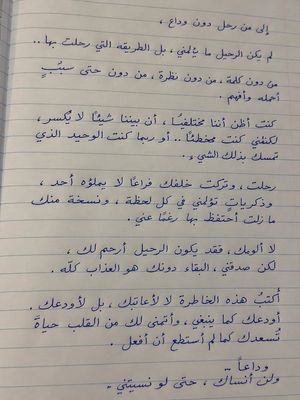 إلى من رحل دون وداع ،
لم يكن الرحيل ما يؤلمني ، بل الطريقه التي رحلت بها ..
من دون كلمة ، من دون نظرة ، من دون حتى سبب
أحمله وأفهم .
كنت أظن أننا مختلفين ، أن بيننا شيئًا لا يُكسر ،
لكنني كنت مخطئًا .. أو ربما كنت الوحيد الذي
تمسك بذلك الشيء .
رحلت ، وتركت خلفك فراغًا لا يملؤه أحد ،
وذكريات تؤلمني في كل لحظة ، ونسخة منك
ما زلت أحتفظ بها رغمًا عني .
لا ألومك ، فقد يكون الرحيل أرحم لك ،
لكن صدقني ، البقاء دونك هو العذاب كلّه .
أكتبُ هذه الخاطرة لا لأعاتبك ، بل لأودعك .
أودعك كما ينبغي ، وأتمنى لك من القلب حياةً
تُسعدك كما لم أستطع أن أفعل .
وداعاً
ولن أنساك ، حتى لو نسيتني .